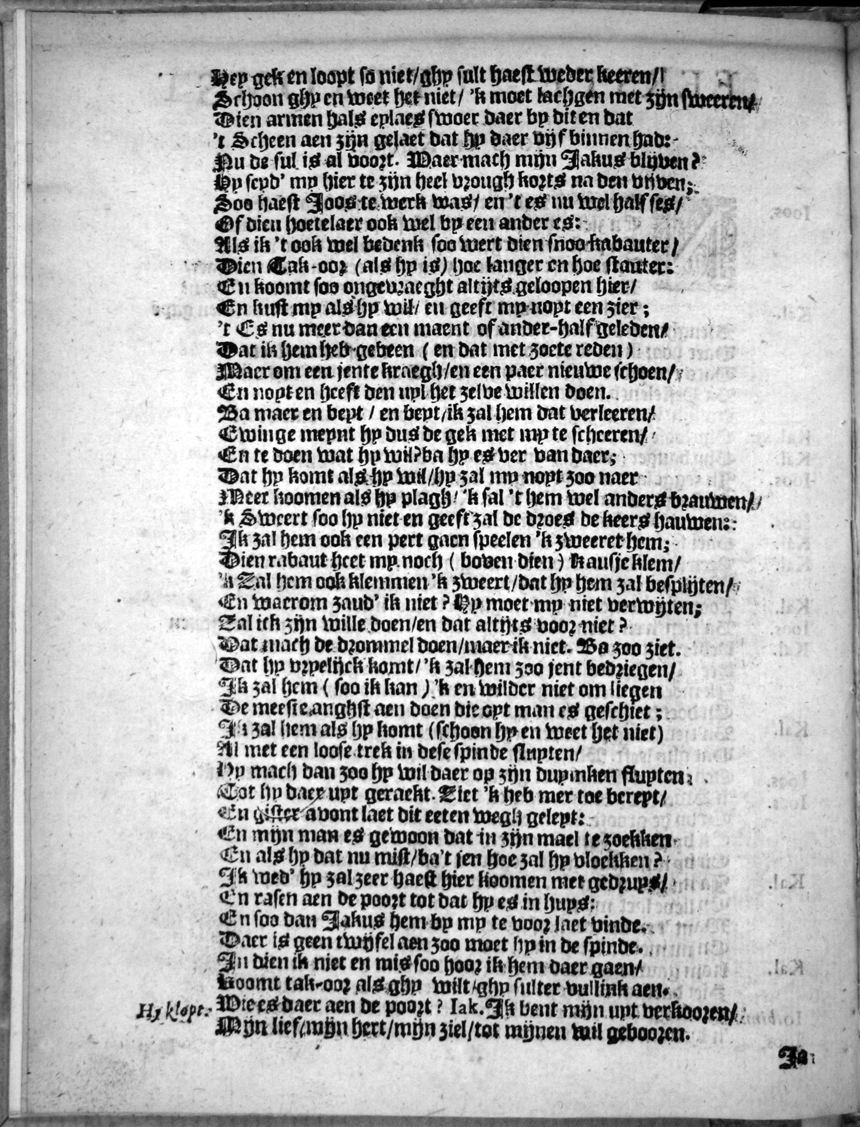 Hey gek en loopt so niet/ghy sult haest weder keeren/
Schoon ghy en weet het niet/ 'k moet lachgen met zijn sweeren/
Dien armen hals eylaes swoer daer by dit en dat
't Scheen aen zijn gelaet dat hy daer vijf binnen had:
Nu de sul is al voort. Waer mach mijn Jakus blijven?
Hy seyd' my hier te zijn heel vrough korts na den vijven;
Soo haest Joos te werk was/ en 't es nu wel half ses/
Of dien hoetelaer ook wel by een ander es:
Als ik 't ook wel bedenk soo wert dien snoo kabauter/
Dien Tak-oor (als hy is) hoe langer en hoe stauter:
En koomt soo ongevraeght altijts geloopen hier/
En kust my als hy wil/ en geeft my noyt een zier;
't Es nu meer dan een maent of ander-half geleden/
Dat ik hem heb gebeen ( en dat met zoete reden )
Maer om een jente kraegh/en een paer nieuwe schoen/
En noyt en heeft den uyl het zelve willen doen.
Ba maer en beyt / en beyt/ik zal hem dat verleeren/
Ewinge meynt hy dus de gek met my te scheeren/
En te doen wat hy wil?ba hy es ver van daer;
Dat hy komt als hy wil/hy zal my noyt zoo naer
Meer koomen als hy plagh/ 'k sal 't hem wel anders brauwen/
'k Sweert soo hy niet en geeft zal de droes de keers hauwen:
Ik zal hem ook een pert gaen speelen 'k zweeret hem;
Dien rabaut heet my noch ( boven dien ) Kausje klem/
'k Zal hem ook klemmen 'k zweert/dat hy hem zal besplijten/
En waerom zaud' ik niet? Hy moet my niet verwijten;
Zal ick zijn wille doen/en dat altijts voor niet?
Dat mach de drommel doen/maer ik niet. Ba zoo ziet.
Dat hy vryelijck komt/ 'k zal hem zoo jent bedriegen/
Ik zal hem ( soo ik kan ) 'k en wilder niet om liegen
De meeste anghst aen doen die oyt man es geschiet;
Ik zal hem als hy komt (schoon hy en weet het niet)
Al met een loose trek in dese spinde sluyten/
Hy mach dan zoo hy wil daer op zijn duymken fluyten
Tot hy daer uyt geraekt. Ziet 'k heb mer toe bereyt/
En gister avont laet dit eeten wegh geleyt:
En mijn man es gewoon dat in zijn mael te zoekken
En als hy dat nu mist/ba't jen hoe zal hy vloekken?
Ik wed' hy zal zeer haest hier koomen met gedruys/
En rasen aen de poort tot dat hy es in huys:
En soo dan Jakus hem by my te voor laet vinde.
Daer is geen twijfel aen zoo moet hy in de spinde.
In dien ik niet en mis soo hoor ik hem daer gaen/
Koomt tak-oor als ghy wilt/ghy sulter vullink aen.
Hy klopt. Wie es daer aen de poort? Iak. Ik bent mijn uyt verkooren/
Mijn lief/mijn hert/mijn ziel/tot mijnen wil gebooren.
Ja